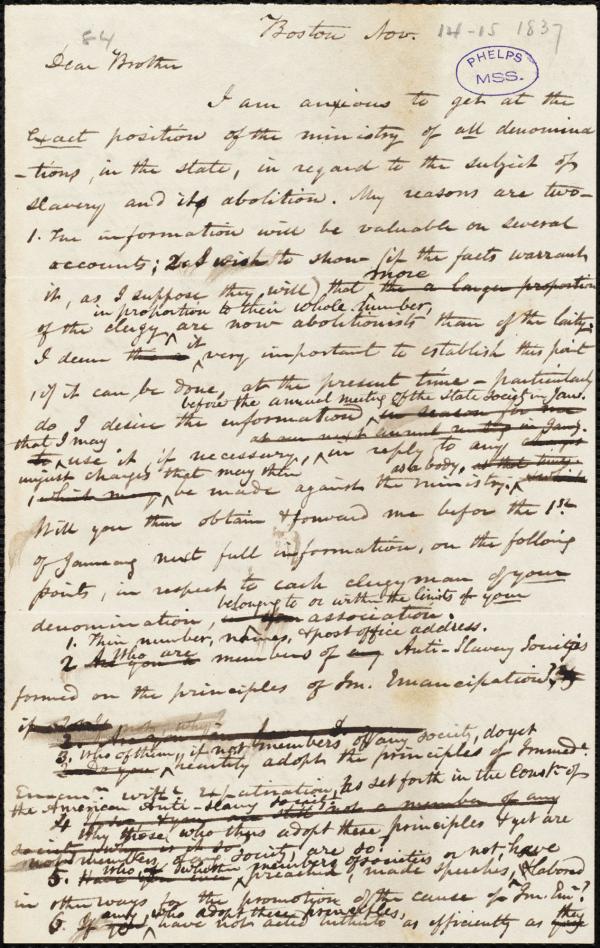 84
Boston Nov. 14-15 1837
PHELPS
MSS.
Dear Brother
I am anxious to get at the
exact position of the ministry of all denomina
-tions, in the state, in regard to the subject of
slavery and its abolition. My reasons are two-
1. The information will be valuable on several
accounts; 2. I wish to show (if the facts warrant
it, as I suppose they will) that more the a larger proportion
in proportion to their whole number,
of the clergy are now abolitionists than of the laity.
I deem it very important to establish this point
, if it can be done, at the present time - particularly
before the annual meeting of the State Society in Jan.
do I desire the information in season for
at our next annual meeting in Jany.
that I may
to use it if necessary, in reply to any
unjust charges that may then as a body, at that time
which may be made against the ministry,
Will you then obtain & forward me before the 1st
of January next full information, on the following
points, in respect to each clergyman of your
belonging to or within the limits of your
denomination, association.
1. Their number, names, & post office address.
2 Who are members of any Anti-Slavery Societies
formed on the principles of Im. Emancipation?
if not, why?
3. Who of them, if not members of any society, do yet
heartily adopt the principles of Immede.
Emancn. without expatriation, as set forth in the Constn. of
the American Anti-Slavery society
4 not a member of any
Why those, who thus adopt these principles & yet are
society, why is it so
not members of any society, are so?
5. Who, whether members of societies or not, have
preached, made speeches, & labored
in other ways for the promotion of the cause of Im. Em?
6. If any who adopt these principles, they
have not acted hitherto as efficiently as they